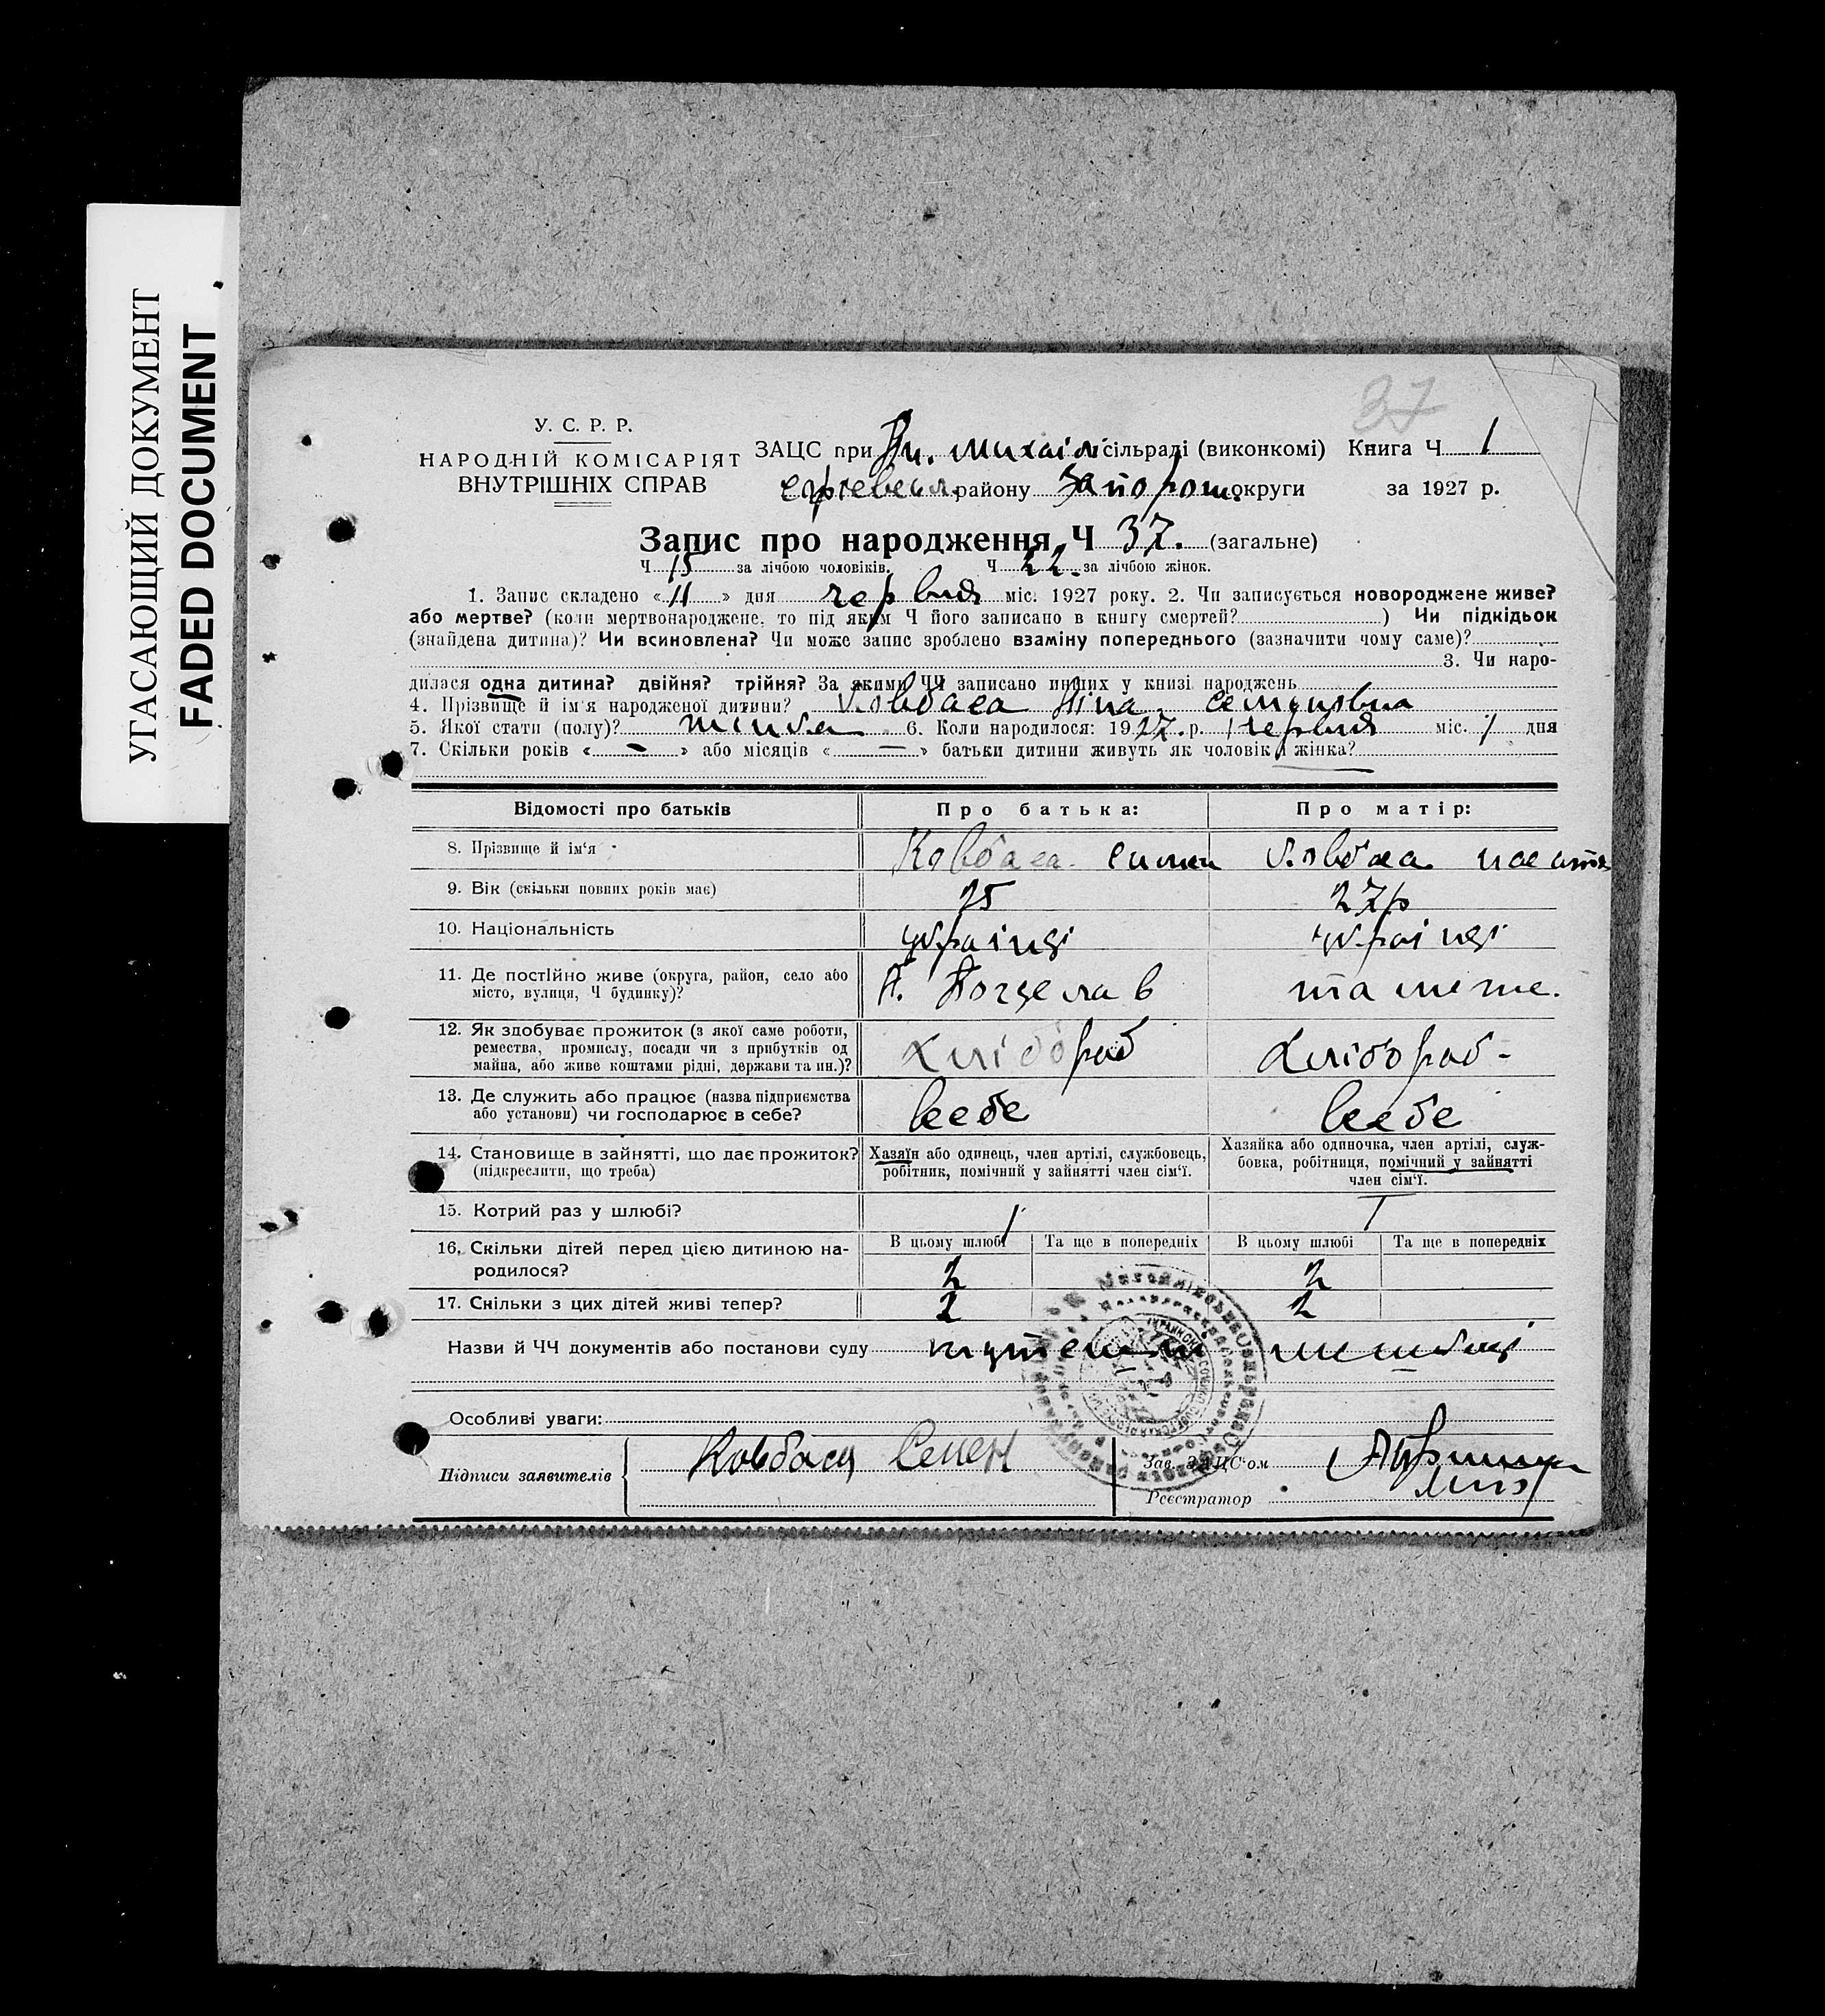 УГАСАЮЩИЙ ДОКУМЕНТ
FADED DOCUMENT
37
У. С. Р. Р.
НАРОДНІЙ КОМІСАРІЯТ
ВНУТРІШНІХ СПРАВ
ЗАЦС при Михайлі сільраді (виконкомі) Книга Ч 1
району Запорож. округи за 1927 р.
Запис про народження Ч 37. (загальне)
Ч 15 за лічбою чоловіків. Ч 22. за лічбою жінок.
1. Запис складено «11» дня червня міс. 1927 року. 2. Чи записується новороджене живе?
або мертве? (коли мертвонароджене, то під яким Ч його записано в книгу смертей?) Чи підкідьок
(знайдена дитина)? Чи всиновлена? Чи може запис зроблено взаміну попереднього (зазначити чому саме)?
3. Чи наро-
дилася одна дитина? двійня? трійня? За якими ЧЧ записано инших у книзі народжень
4. Прізвище й ім'я народженої дитини? Ковбаса Ніна Семеновна
5. Якої стати (полу)? жінка 6. Коли народилося: 1927. р. червня міс. 1 дня
7. Скільки років « — » або місяців « — » батьки дитини живуть як чоловік і жінка?
Відомості про батьків Про батька: Про матір:
8. Прізвище й ім'я Ковбаса Ковбаса
9. Вік (скільки повних років має) 25 27р
10. Національність українці українці
11. Де постійно живе (округа, район, село або
місто, вулиця, Ч будинку)? таможе.
12. Як здобуває прожиток (з якої саме роботи,
ремества, промислу, посади чи з прибутків од
майна, або живе коштами рідні, держави та ин.)? хлібороб хлібороб-
13. Де служить або працює (назва підприємства
або установи) чи господарює в себе? всебе всебе
14. Становище в зайнятті, що дає прожиток?
(підкреслити, що треба)
Хазяїн або одинець, член артілі, службовець,
робітник, помічний у зайнятті член сім'ї.
Хазяйка або одиночка, член артілі, служ-
бовка, робітниця, помічний у зайнятті
член сім'ї.
15. Котрий раз у шлюбі? 1 1
В цьому шлюбі Та ще в попередніх В цьому шлюбі Та ще в попередніх
16. Скільки дітей перед цією дитиною на-
родилося? 2 2
17. Скільки з цих дітей живі тепер? 2 2
Назви й ЧЧ документів або постанови суду
Особливі уваги:
Підписи заявителів Ковбаса Семен
Зав. ЗАЦС'ом
Реєстратор